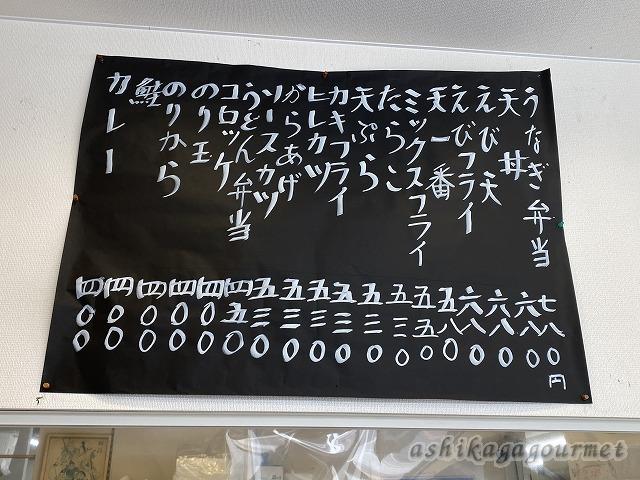 うなぎ弁当 七八〇円
天丼 六八〇
えび天 六八〇
えびフライ 六八〇
天一番 五八〇
ミックスフライ 五五〇
たらこ 五三〇
天ぷら 五三〇
カキフライ 五三〇
ヒレカツ 五三〇
からあげ 五三〇
ソースカツ 五三〇
うどん弁当 四五〇
コロッケ 四〇〇
のり玉 四〇〇
のりから 四〇〇
鮭 四〇〇
カレー 四〇〇
ashikagagourmet